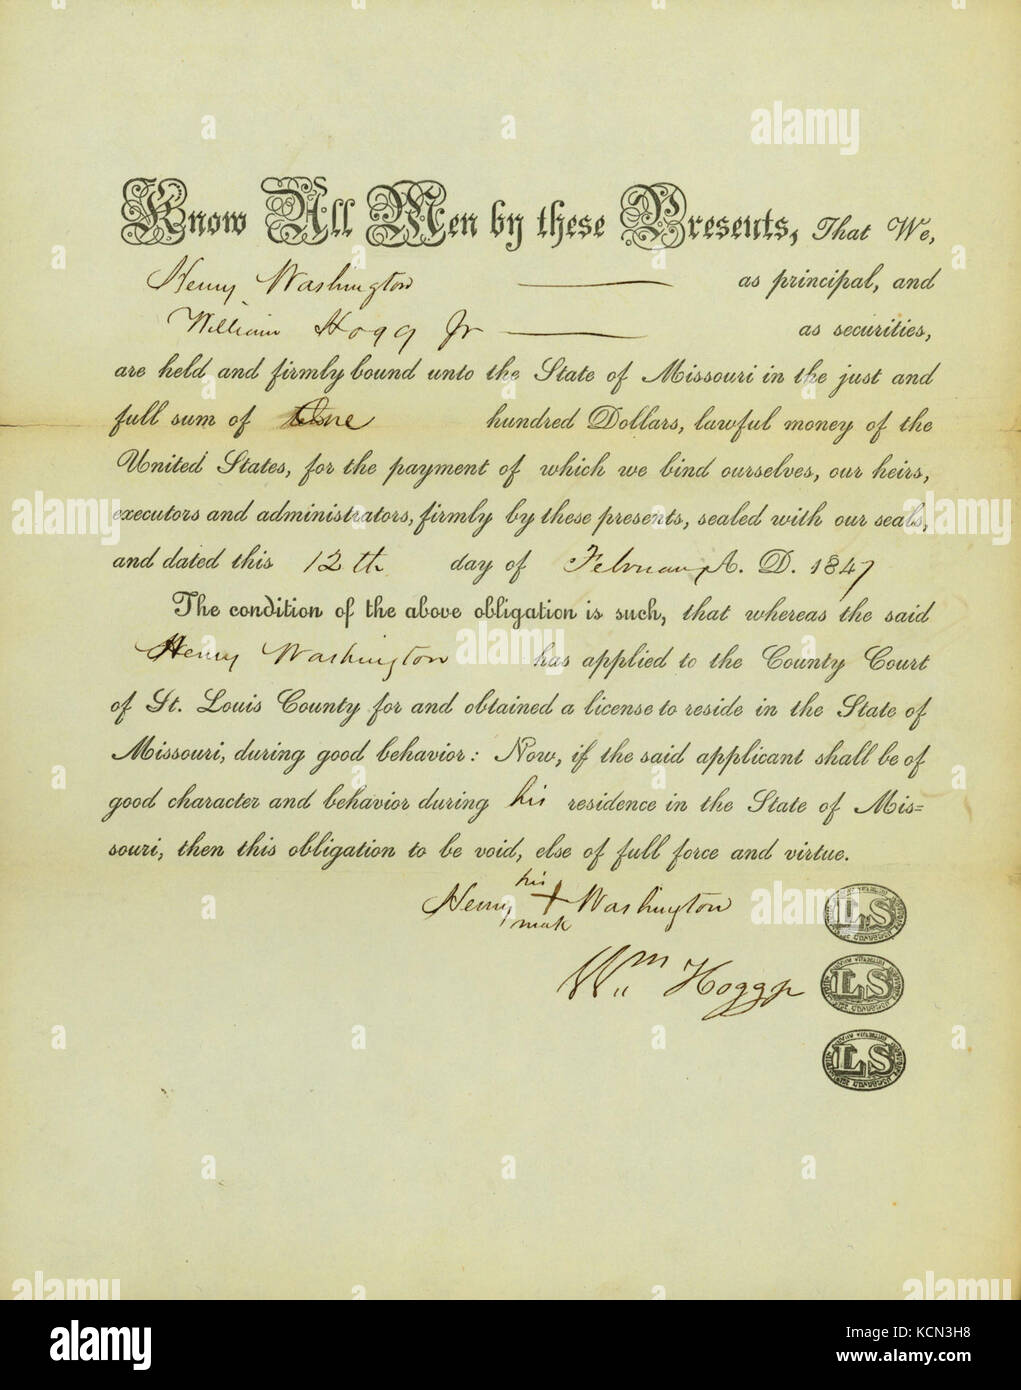 Know All Men by these Presents, That We,
Henry Washington as principal, and
William Hogg Jr as securities,
are held and firmly bound unto the State of Missouri in the just and
full sum of One hundred Dollars, lawful money of the
United States, for the payment of which we bind ourselves, our heirs,
executors and administrators, firmly by these presents, sealed with our seals,
and dated this 12th day of February A. D. 1847
The condition of the above obligation is such, that whereas the said
Henry Washington has applied to the County Court
of St. Louis County for and obtained a license to reside in the State of
Missouri, during good behavior: Now, if the said applicant shall be of
good character and behavior during his residence in the State of Mis=
souri, then this obligation to be void, else of full force and virtue.
his
Henry + Washington
mark
Wm Hogg Jr
LS
LS
LS
alamy
a
alamy stock photo
Image ID: KCN3H8
www.alamy.com